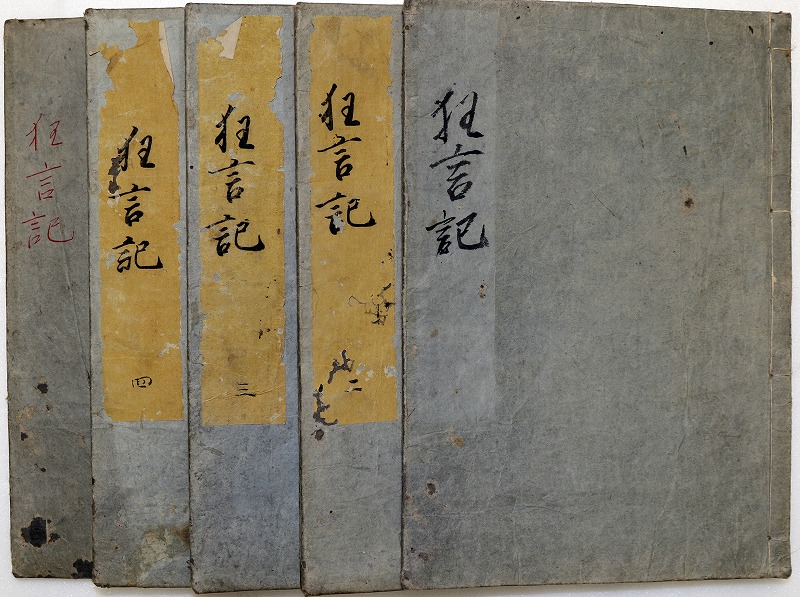 狂言記
狂言記
二
狂言記
三
狂言記
四
狂言記